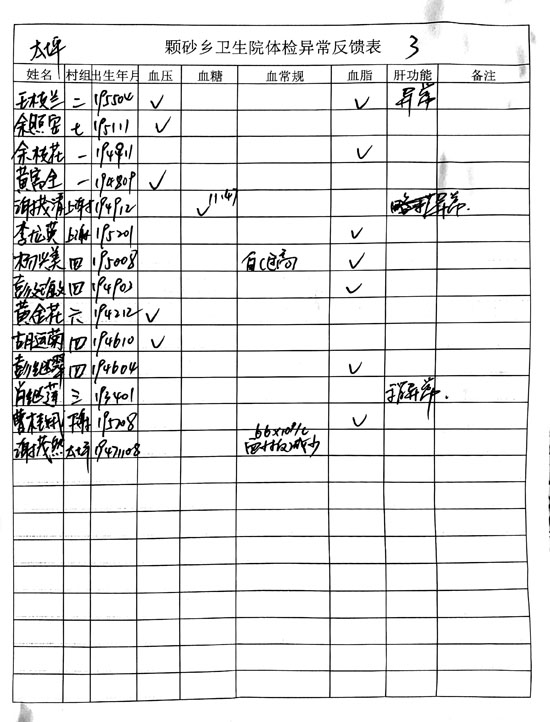 太坪 颗砂乡卫生院体检异常反馈表 3
姓名 村组 出生年月 血压 血糖 血常规 血脂 肝功能 备注
王枝兰 二 195504 ✓ ✓ 异常
余照 七 195111 ✓
余枝花 一 194911 ✓
黄 一 194809 ✓
谢茂清 194912 ✓ 11.47 异常
李 195201 ✓
杨兴美 四 195008 白C ✓
彭 四 194902 ✓
黄金花 六 194212 ✓
胡运菊 四 194610 ✓
彭继翠 四 194604 ✓
肖继莲 三 193401 异常.
曹桂 195208 ✓
谢茂然 太坪 19471108 减少